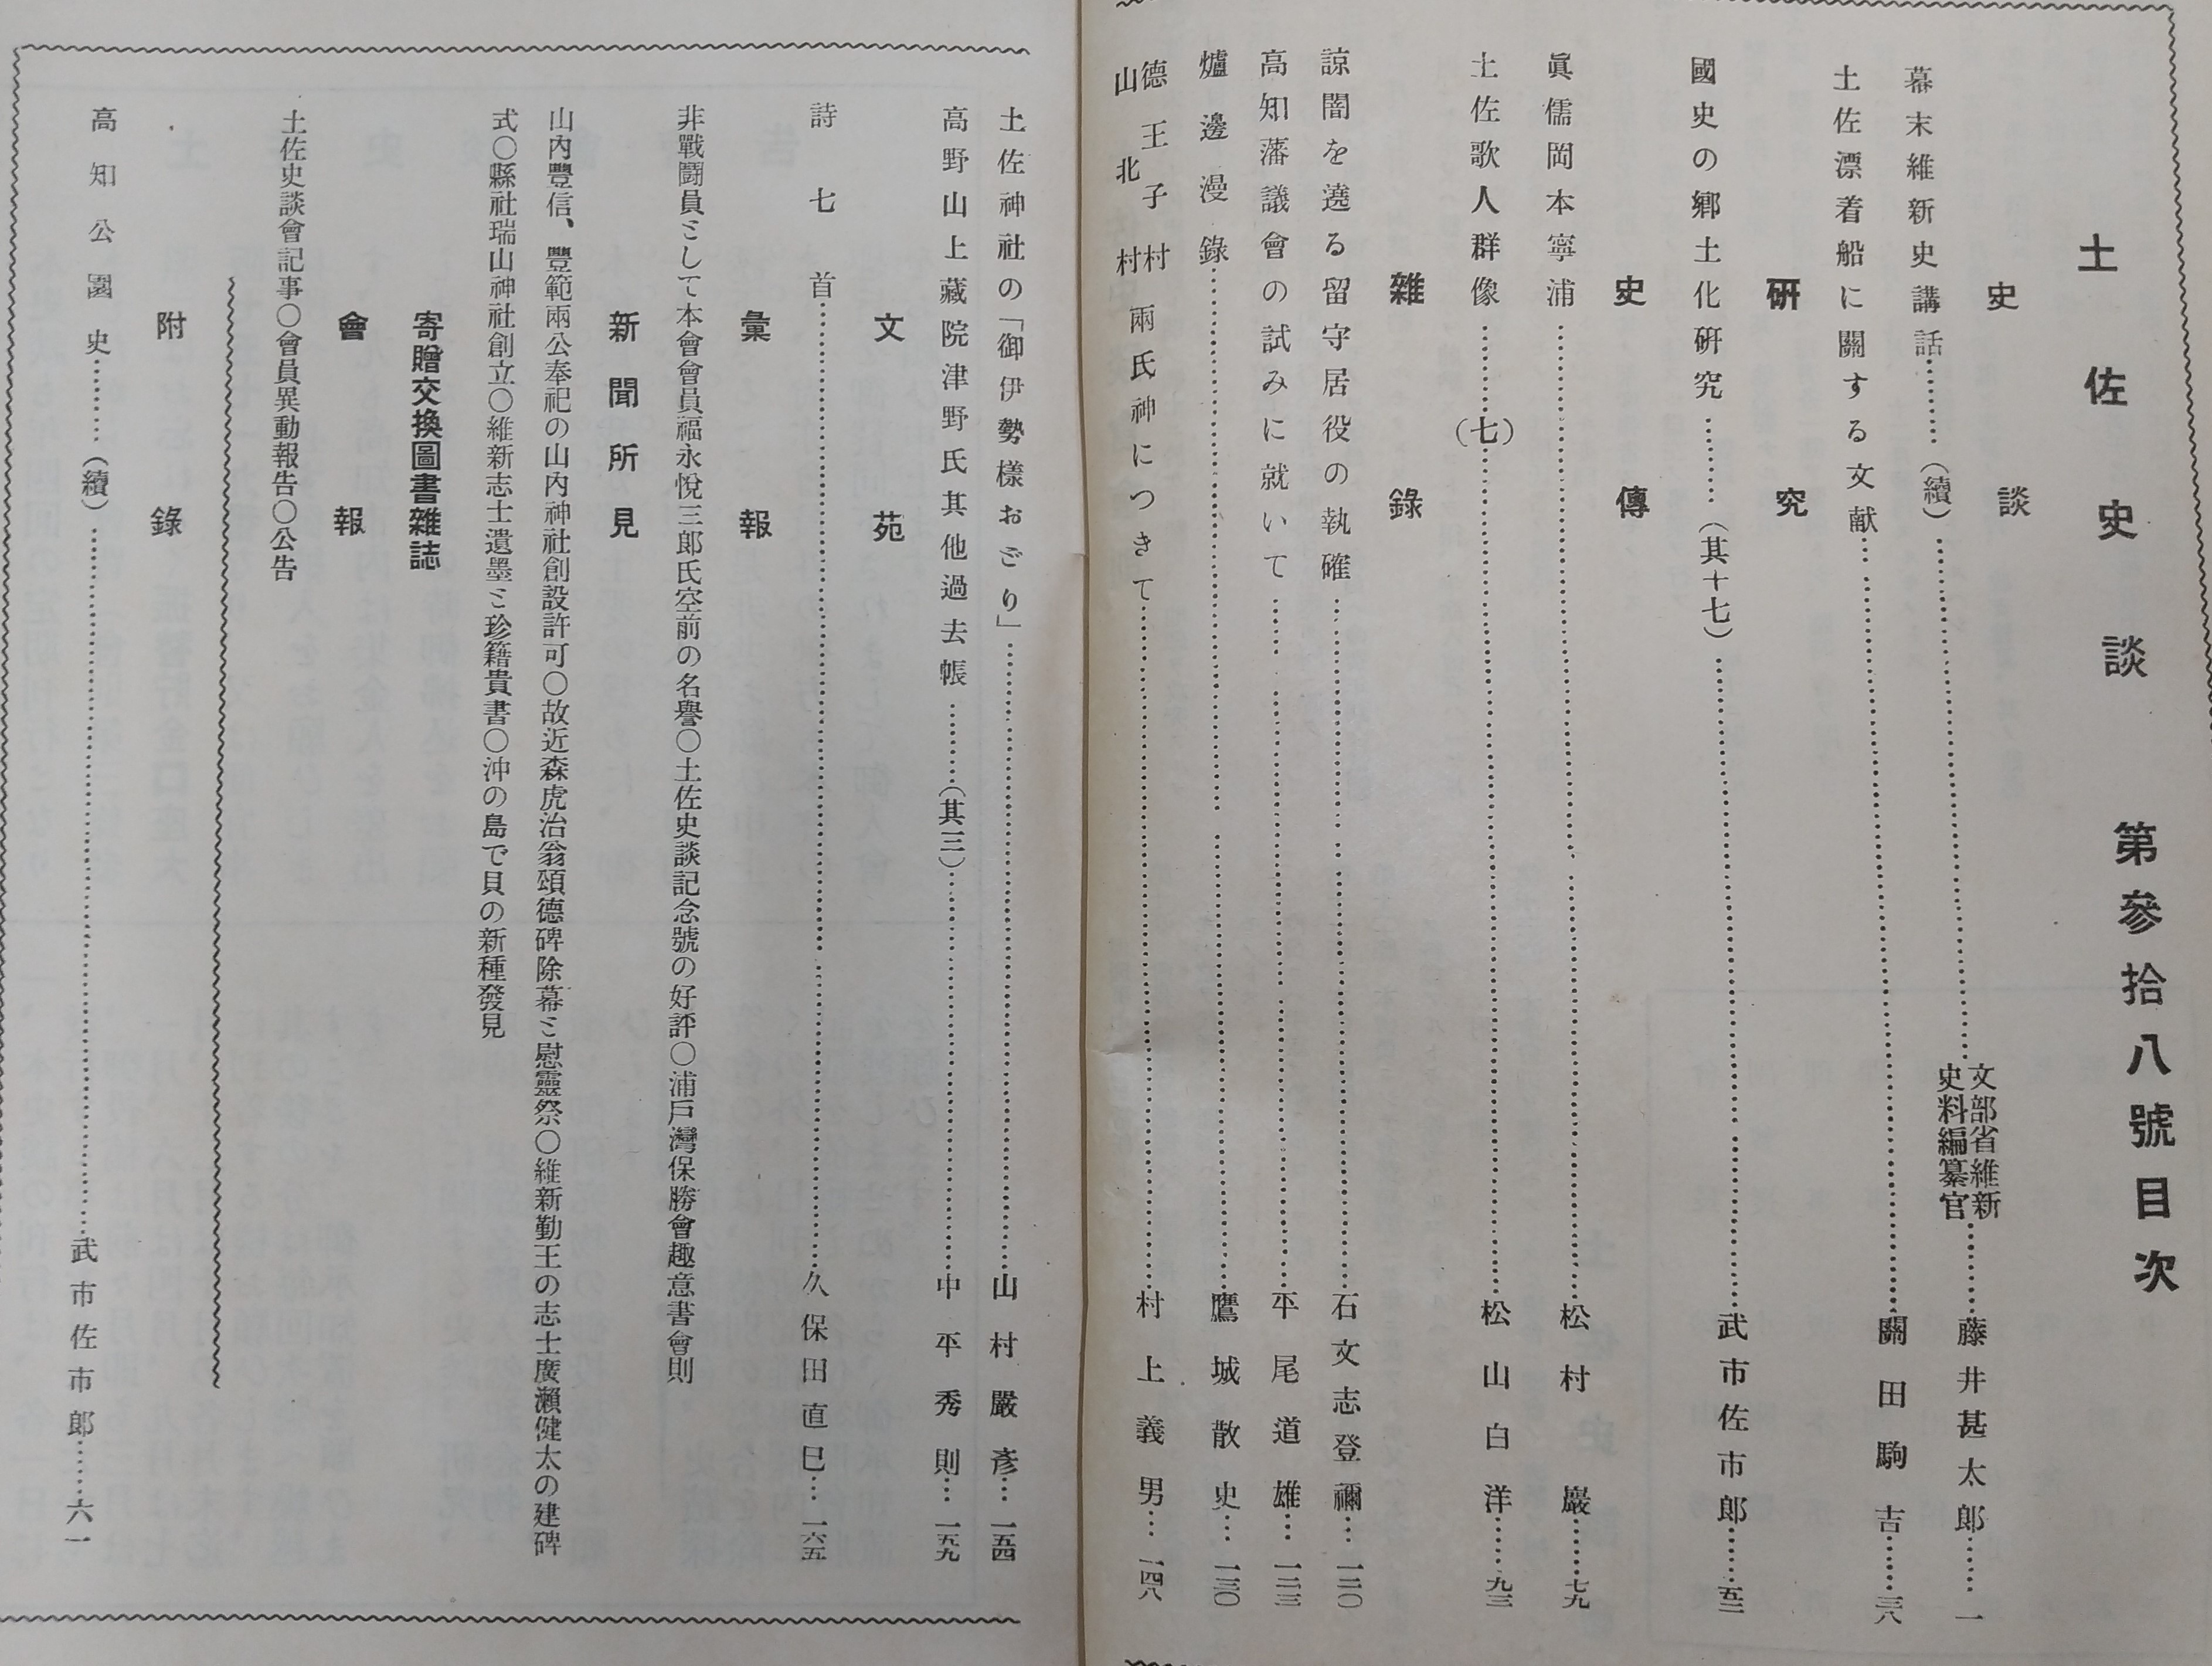 土佐史談 第參拾八號目次
史談
幕末維新史講話………(續)………文部省維新史料編纂官……藤井甚太郎……一
土佐漂着船に關する文献………關田駒吉……三八
研究
國史の郷土化硏究………(其十七)………武市佐市郎……五三
史傳
眞儒岡本寧浦………松村巖……七九
土佐歌人群像………(七)………松山白洋……九三
雜錄
諒闇を遶る留守居役の執確………石文志登禰…一二〇
高知藩議會の試みに就いて………平尾道雄…一二三
爐邊漫錄………鷹城散史…一三〇
德王子村山北村兩氏神につきて………村上義男…一四八
土佐神社の「御伊勢樣おどり」………山村嚴彥…一五四
高野山上藏院津野氏其他過去帳………(其三)………中平秀則…一五九
文苑
詩七首………久保田直巳…一六五
彙報
非戰鬪員として本會會員福永悅三郎氏空前の名譽〇土佐史談記念號の好評〇浦戶灣保勝會趣意書會則
新聞所見
山內豐信、豐範兩公奉祀の山內神社創設許可〇故近森虎治翁頌德碑除幕と慰靈祭〇維新勤王の志士廣瀨健太の建碑
式〇縣社瑞山神社創立〇維新志士遺墨と珍籍貴書〇沖の島で貝の新種發見
寄贈交換圖書雜誌
會報
土佐史談會記事〇會員異動報告〇公告
附錄
高知公園史………(續)………武市佐市郎……六一